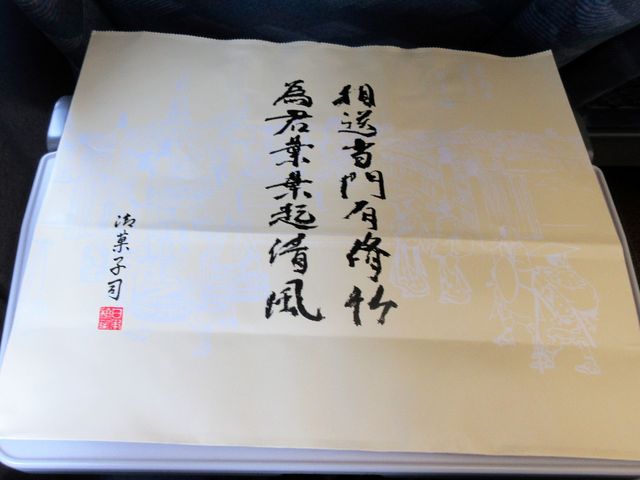 相送当門有脩竹
為君葉葉起清風
御菓子司